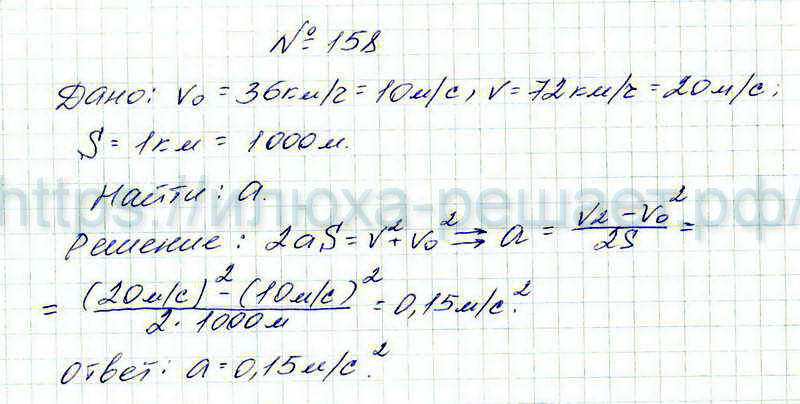 № 158
Дано: v₀ = 36км/ч = 10м/с, v = 72км/ч = 20м/с;
S = 1км = 1000м.
Найти: a.
https://илюха-решает.рф/
Решение: 2aS = v² + v₀² ⇒ a = (v2 - v₀²)/2S =
= ((20м/с)² - (10м/с)²)/(2·1000м) = 0,15м/с².
ответ: a = 0,15м/с².